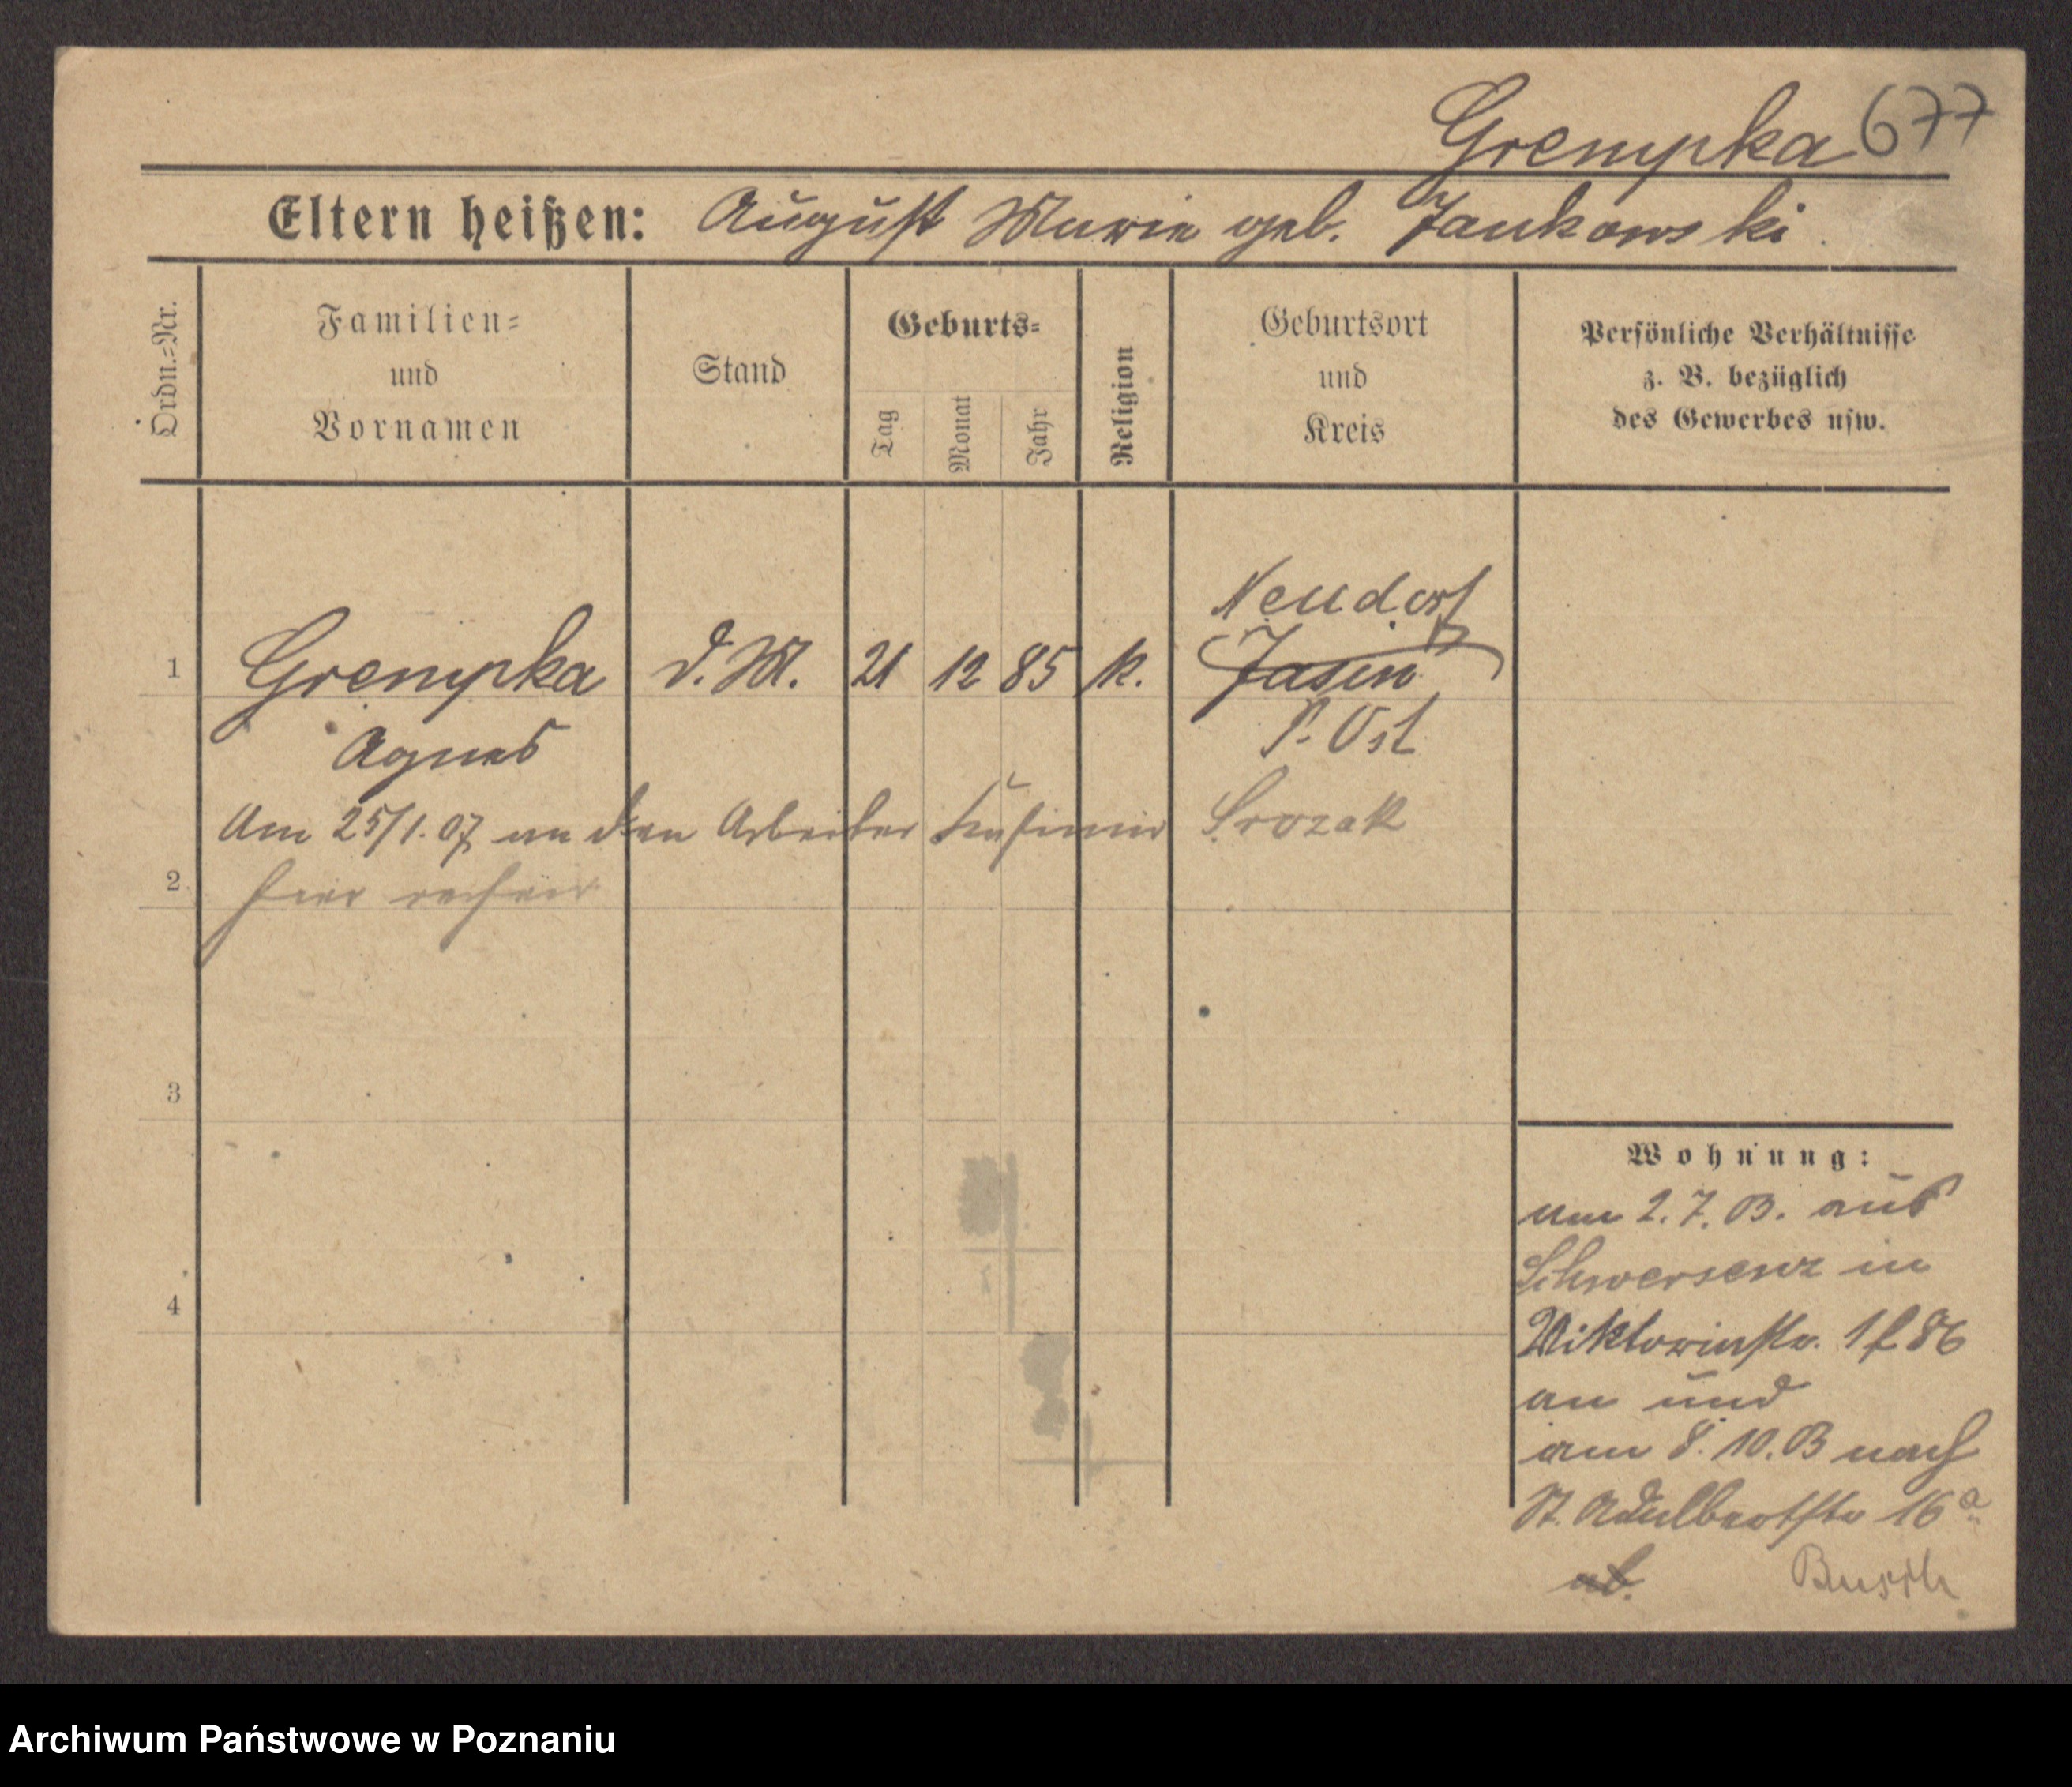 Grempka 677
Eltern heißen: August Marie geb. Jankowski
Ordn.=Nr.
Familien=
und
Vornamen
Stand
Geburts=
Tag
Monat
Jahr
Religion
Geburtsort
und
Kreis
Persönliche Verhältnisse
z. B. bezüglich
des Gewerbes usw.
Neudorf
1 Grempka d. M. 21 12 85 k. Jasin
Agnes P. Ost
Am 25/1.07 an den Arbeiter Kasimir Srozak
2 hier
3
4
Wohnung:
am 2.7.03. aus
Schwersenz in
Viktoriastr. 1 f 86
an und
am 8.10.03 nach
St. Adalbertstr 16 a
ab.
Busch
Archiwum Państwowe w Poznaniu